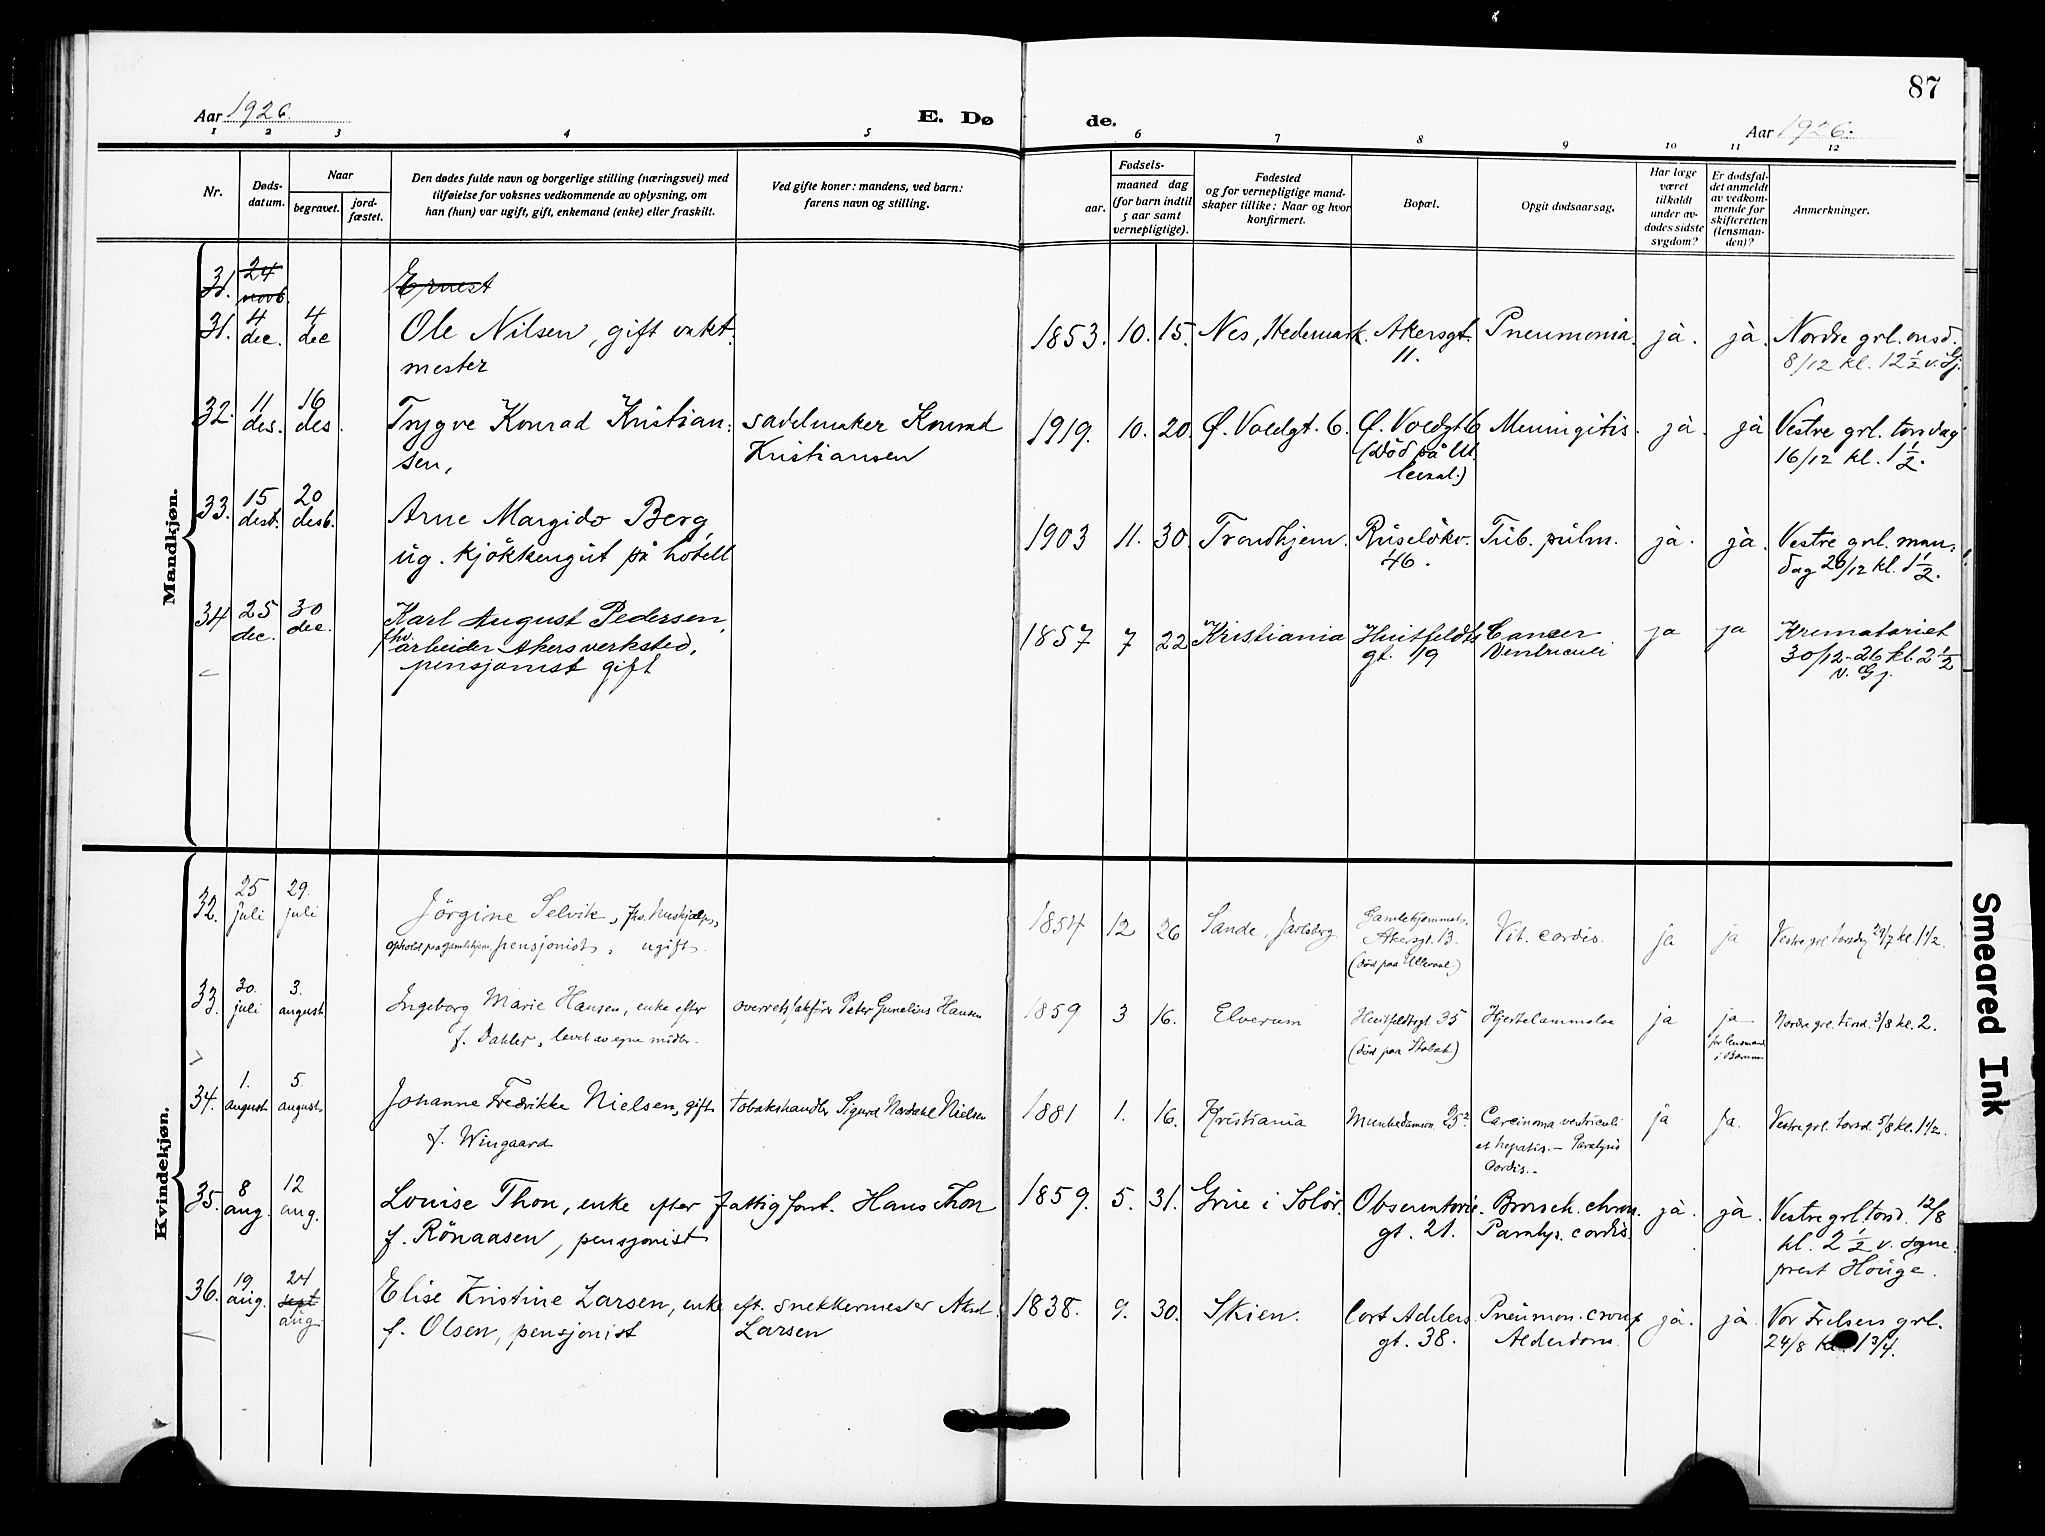 87
Aar 1926.
E. Dø de.
Aar 1926.
1 2 3 4 5 6 7 8 9 10 11 12
Nr.
Døds-
datum.
Naar
begravet.
jord-
fæstet.
Den dødes fulde navn og borgerlige stilling (næringsvei) med
tilføielse for voksnes vedkommende av oplysning, om
han (hun) var ugift, gift, enkemand (enke) eller fraskilt.
Ved gifte koner: mandens, ved barn:
farens navn og stilling.
Fødsels-
aar.
maaned dag
(for barn indtil
5 aar samt
vernepligtige).
Fødested
og for vernepligtige mand-
skaper tillike: Naar og hvor
konfirmert.
Bopæl.
Opgit dødsaarsag.
Har læge
været
tilkaldt
under av-
dødes sidste
sygdom?
Er dødsfal-
det anmeldt
av vedkom-
mende for
skifteretten
(lensman-
den)?
Anmerkninger.
Mandkjøn.
31. 24 novb. Ernest
31. 4 dec. 4 dec Ole Nilsen, gift vakt-
mester
1853. 10. 15. Nes, Hedemark. Akersgt.
11.
Pneumonia. ja. ja. Nordre grl. onsd.
8/12 kl. 12 1/2 v. Gj.
32. 11 des. 16 des. Trygve Konrad Kristian-
sen,
sadelmaker Konrad
Kristiansen
1919. 10. 20. Ø. Voldgt. 6. Ø. Voldgt 6
(Død på Ul
leval.)
Meningitis. ja. ja Vestre grl. torsdag
16/12 kl. 1 1/2.
33. 15 desb. 20 desb. Arne Margido Berg,
ug. kjøkkengut på hotell
1903 11. 30. Trondhjem. Ruseløkv.
46.
Tub. pulm. ja. ja. Vestre grl. man-
dag 20/12 kl. 1 1/2.
34 25 dec. 30 dec. Karl August Pedersen,
fhv. arbeider Akers verksted,
pensjonist gift
1857 7 22 Kristiania Huitfeldts
gt. 19
Cancer
Ventriculi
ja ja Krematoriet
30/12-26 kl. 2 1/2
v. Gj.
Kvindekjøn.
32. 25 juli 29. juli Jörgine Selvik, fhv. hushjelp,
ophold paa gamlehjem, pensjonist, ugift.
1854 12 26 Sande, Jarlsberg Gamlehjemmet.
Akersgt. 13.
(død paa Ullevaal.)
Vit. cordis. ja ja Vestre grl. torsdag 29/7 kl. 1 1/2.
33. 30. juli 3. august Ingeborg Marie Hansen, enke efter
f. Dahler, levet av egne midler.
overretssakfører Peter Gunelius Hansen
1859 3 16. Elverum Huitfeldtsgt 35
(død paa Stabæk)
Hjertelammelse ja ja
for lensmand
i Bærum
Nordre grl. tirsd. 3/8 kl. 2.
34. 1. august 5. august Johanne Fredrikke Nielsen, gift
f. Wingaard
tobakshandler Sigurd Nordahl Nielsen
1881 1. 16. Kristiania Munkedamsvn 25²
Carcinoma ventriculi
et hepatis. - Paralysis
Cordis.-
ja ja. Vestre grl. torsd. 5/8 kl. 1 1/2.
35. 8 aug. 12 aug. Louise Thon, enke efter fattigforst. Hans Thon
f. Rönaasen, pensjonist
1859. 5. 31. Grue i Solør. Observatorie-
gt. 21.
Bronch. chron.
Paralys. cordis.
ja. ja. Vestre grl torsd. 12/8
kl. 2 1/2 v. sogne-
prest Houge.
36. 19. aug. 24 sept aug. Elise Kristine Larsen, enke eft. snekkermester Axel
Larsen
f. Olsen, pensjonist
1838. 9. 30. Skien. Cort Adelers
gt. 38.
Pneumon. croup
Alderdom.
ja. ja. Vor Frelsers grl.
24/8 kl. 1 3/4.
Smeared Ink